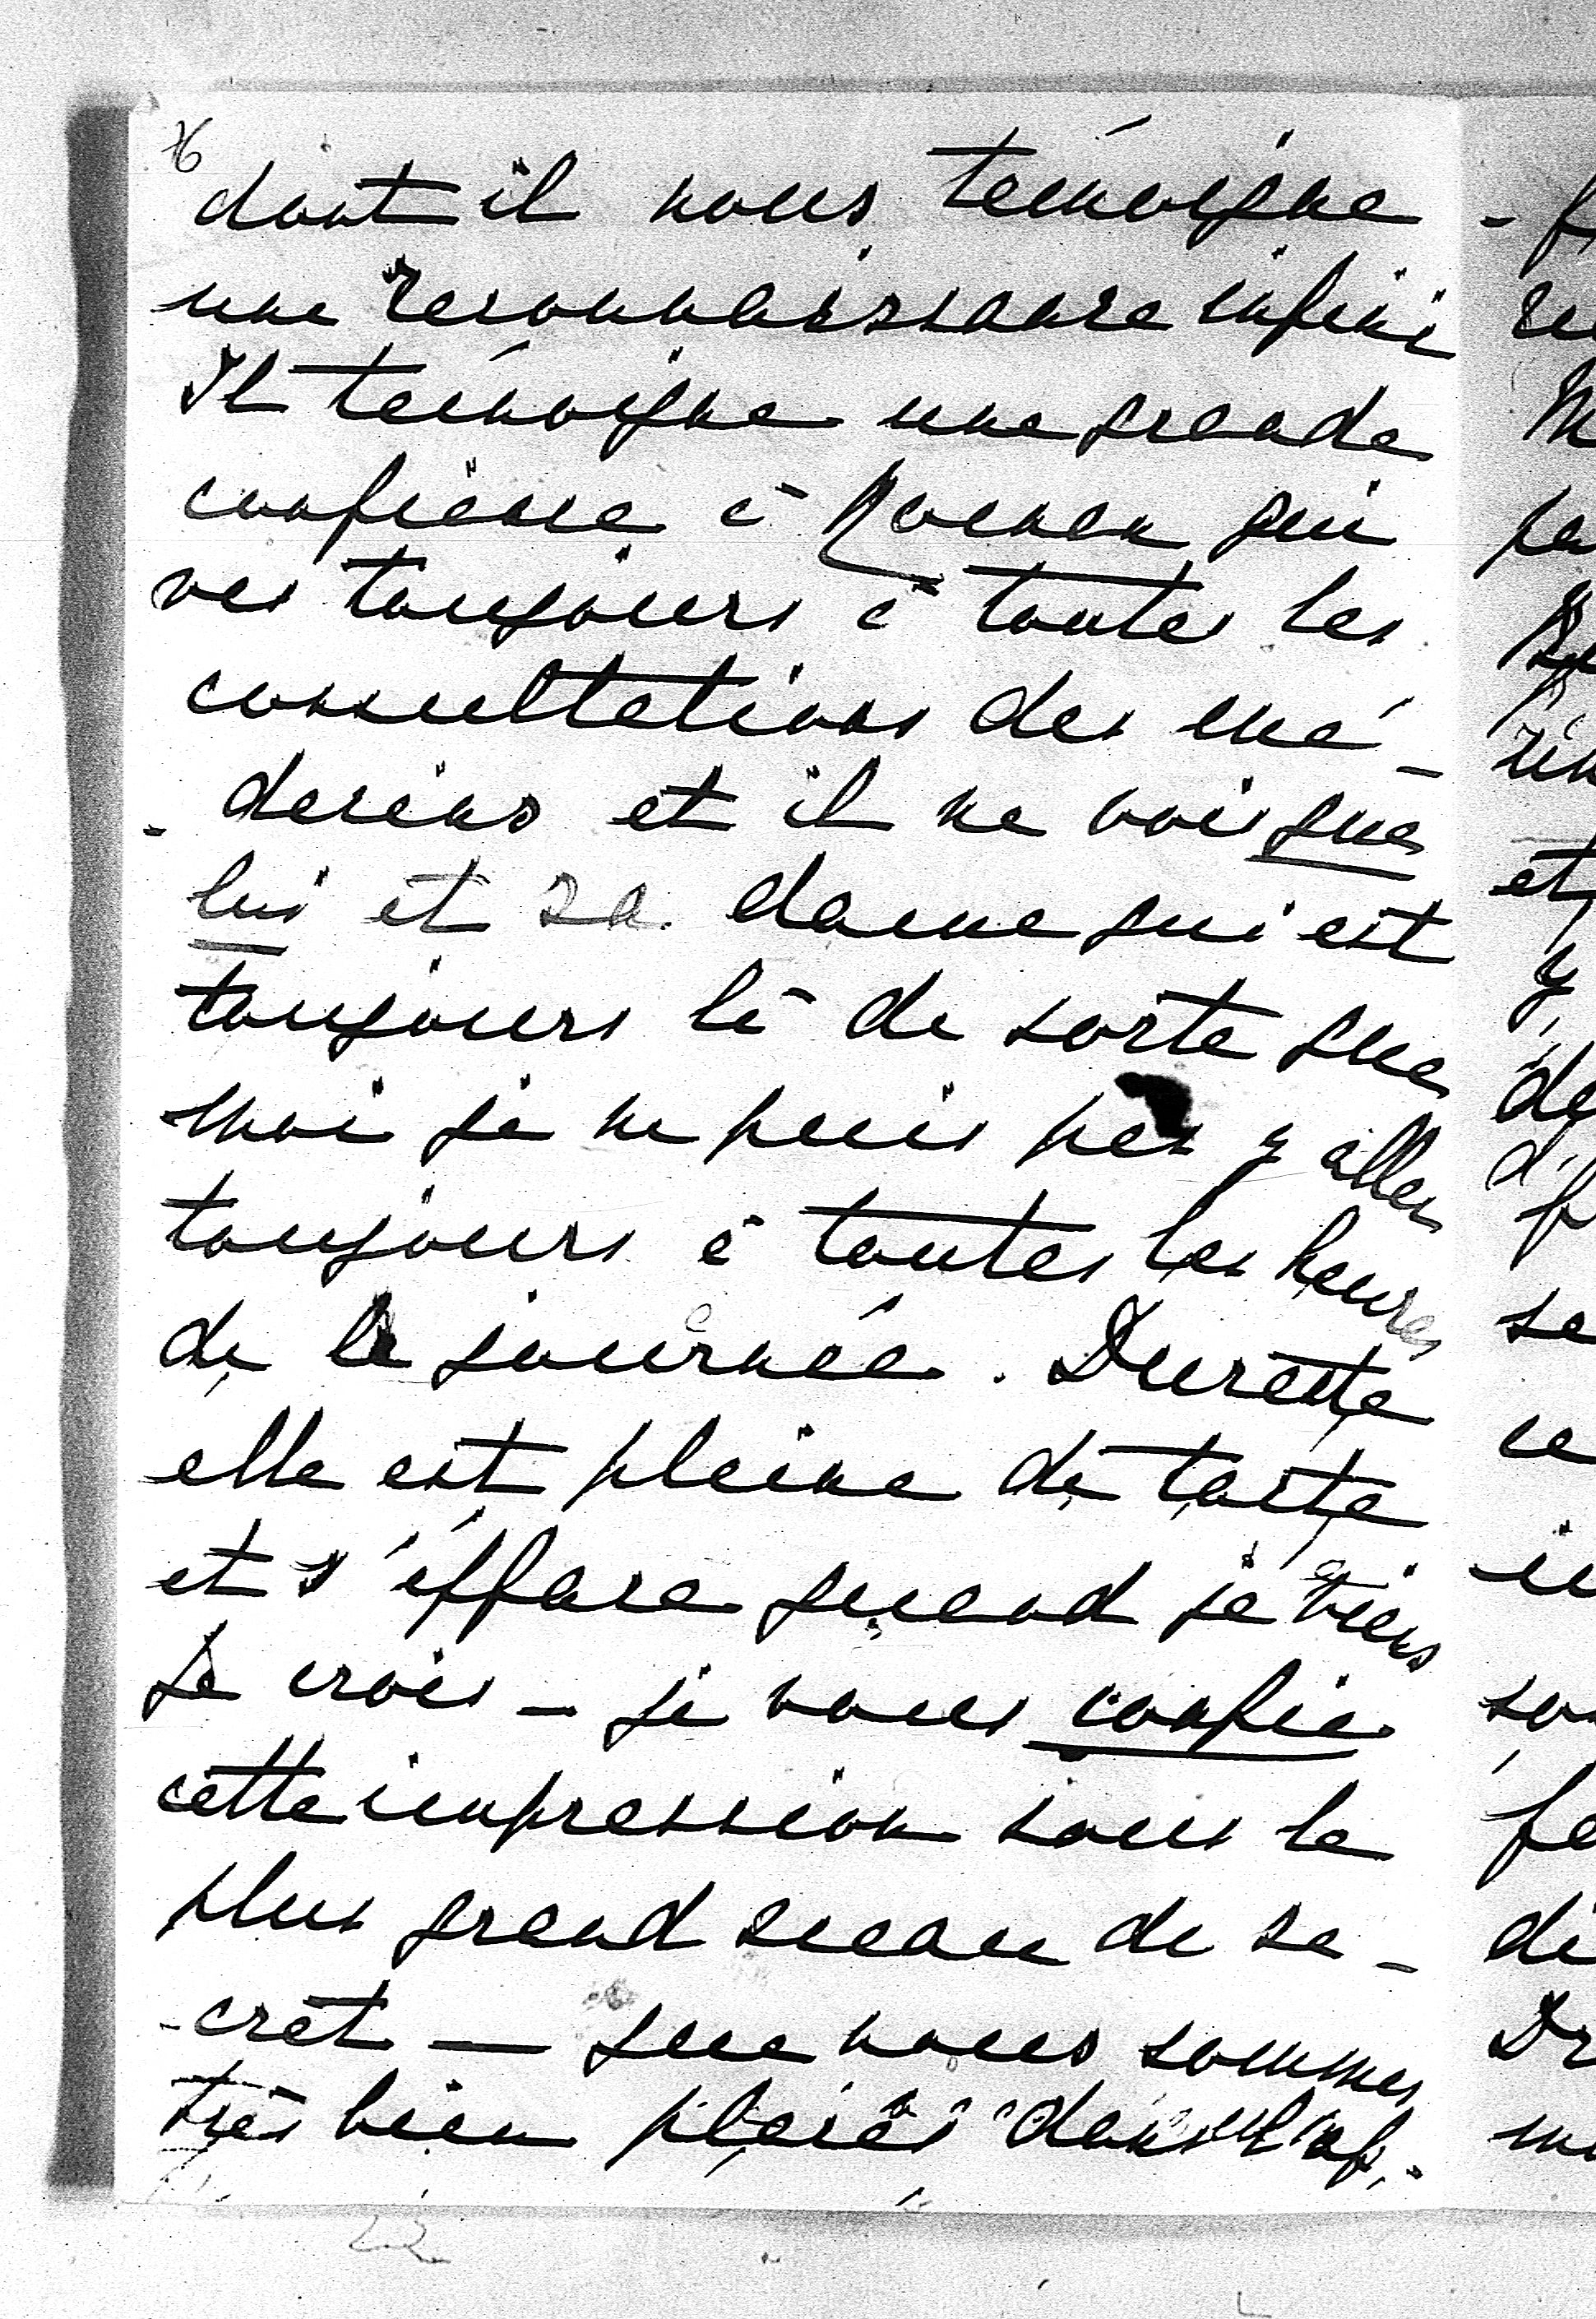 6
dont il nous témoigne
une reconnaissance infini
Il témoigne une grande
confience à qui
vas toujours à toutes les
consultations des mé-
-decins et il ne vois que
lui et sa dame qui est
toujours là de sorte que
moi je ne puis pas y aller
toujours à toutes les heures
de la journée. Dureste
elle est pleine de tacte
et s'éfface quand je viens
Je crois - je vous confie
cette impression sous le
plus grand sceau de se-
-cret — que nous sommes
très bien placés dans l'af.
22